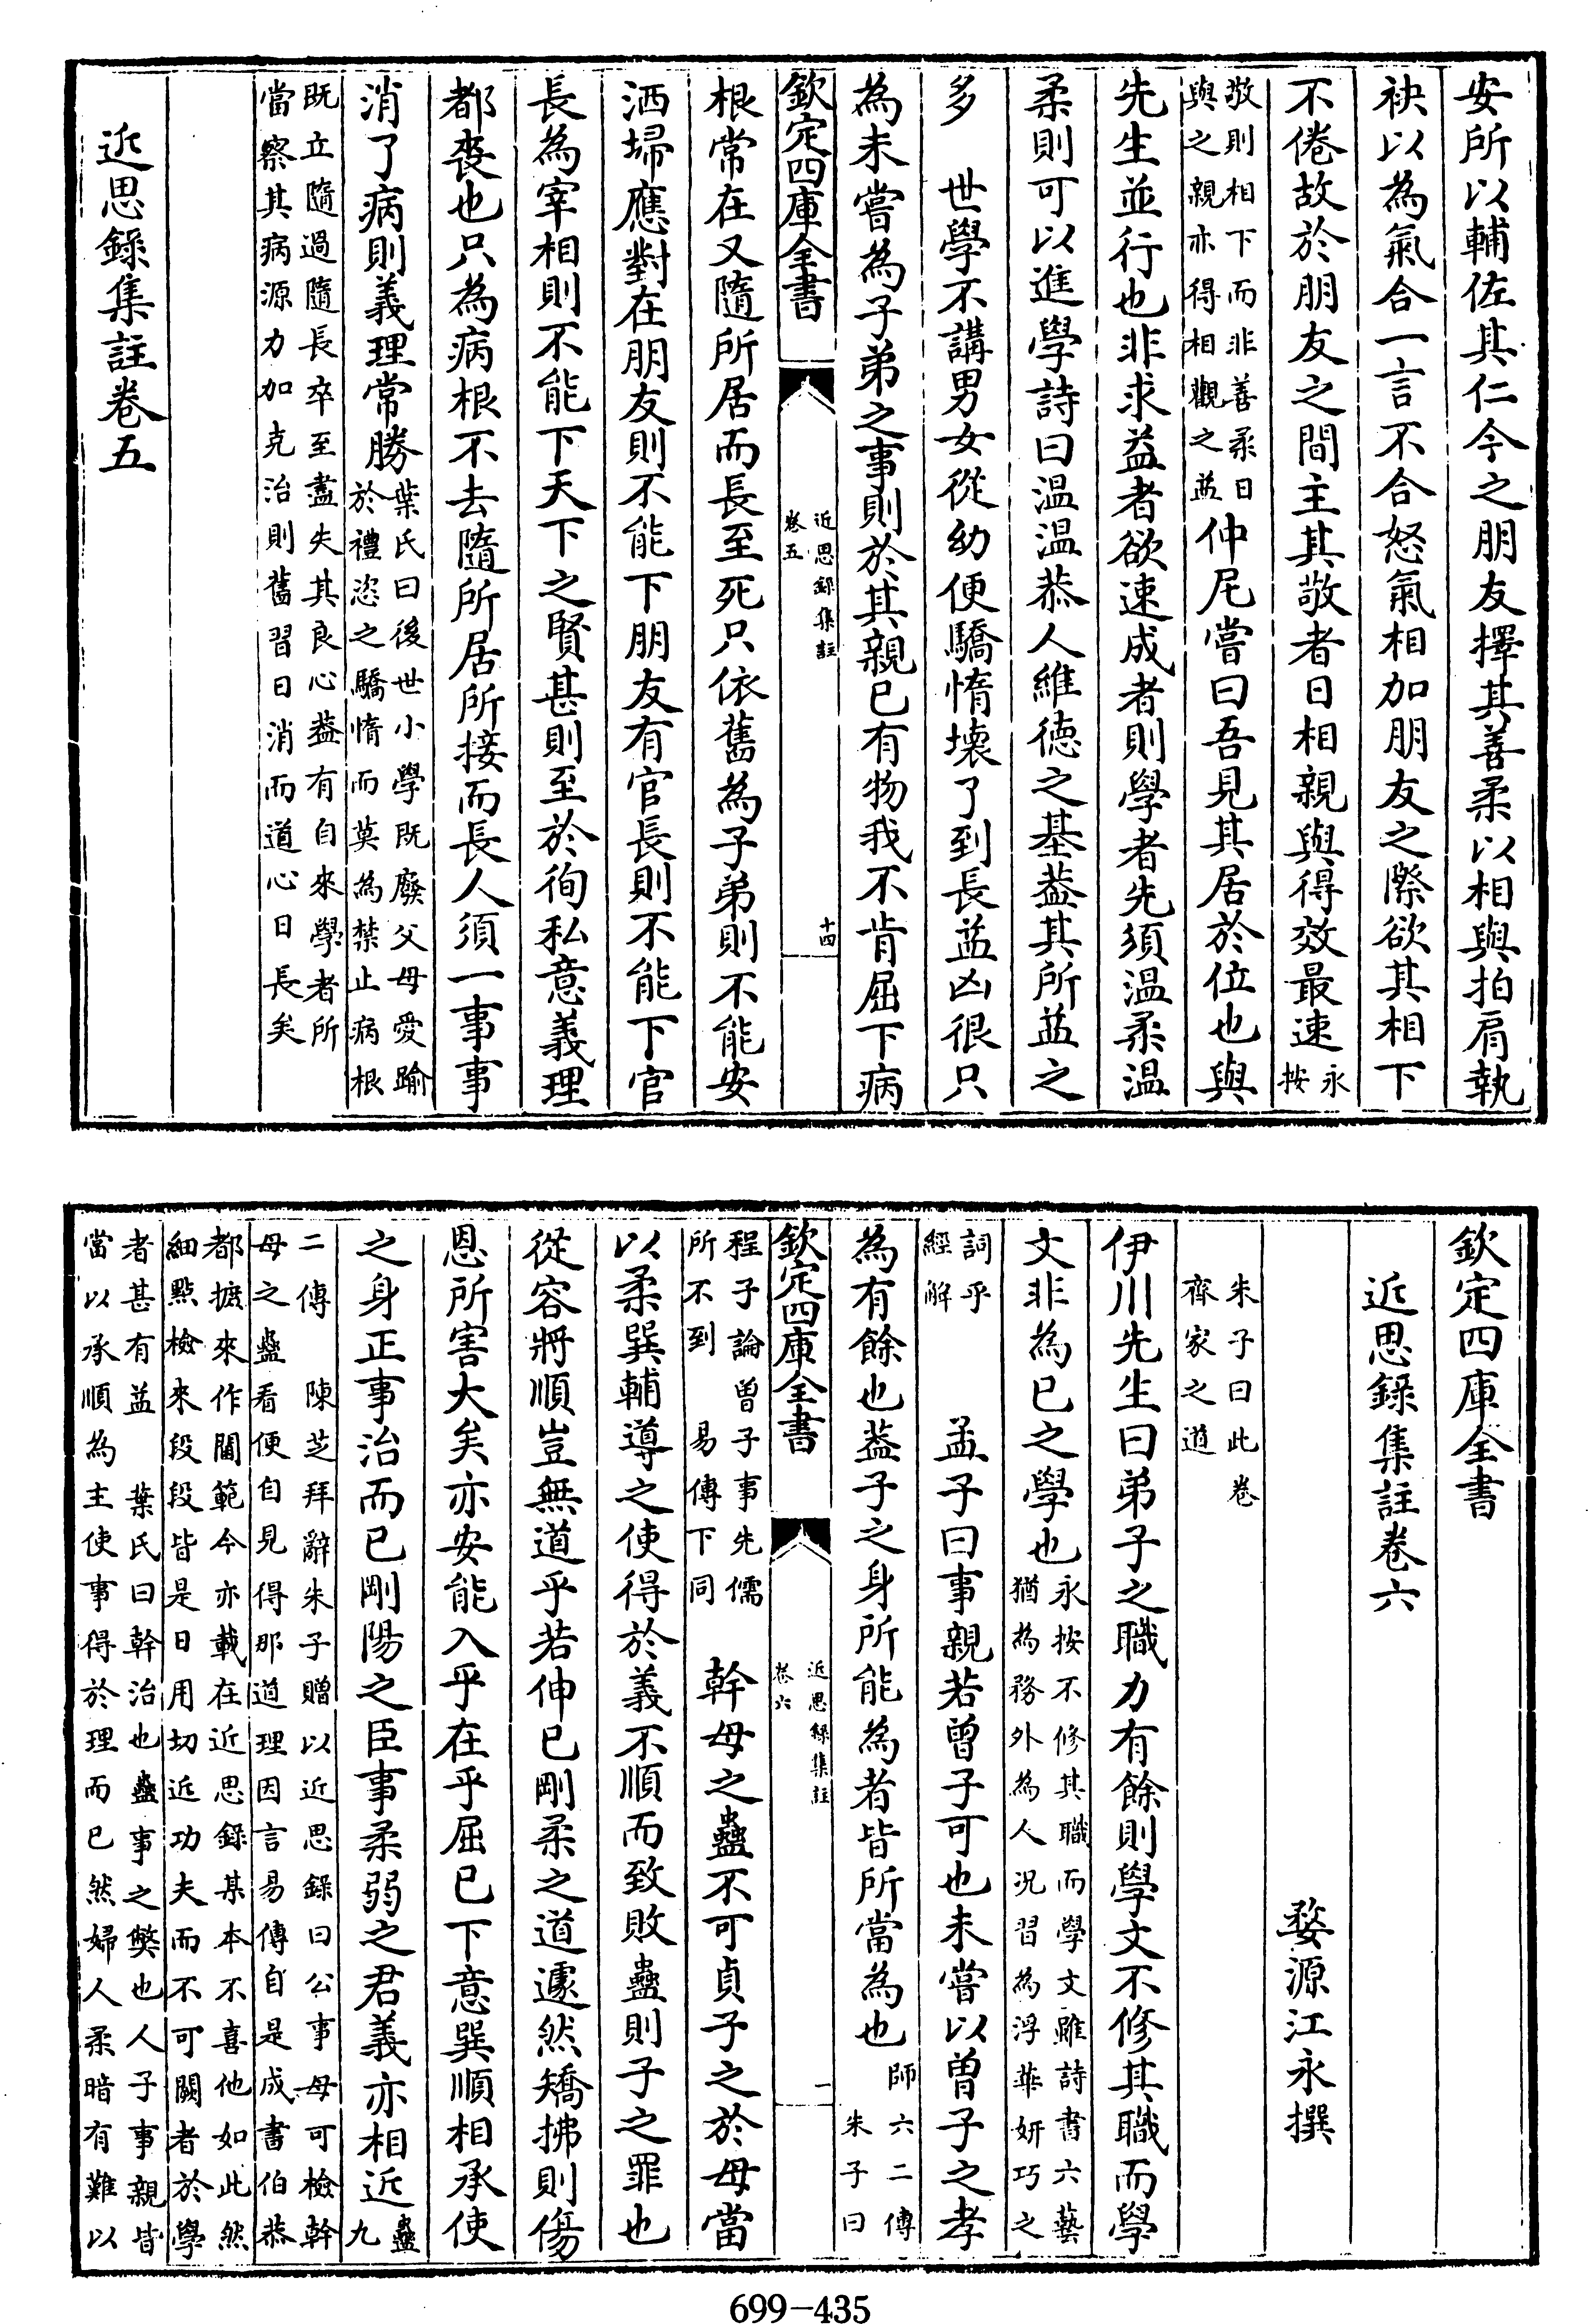 安所以輔佐其仁今之朋友擇其善柔以相與拍肩執
袂以為氣合一言不合怒氣相加朋友之際欲其相下
不倦故於朋友之間主其敬者日相親與得效最速永按
敬則相下而非善柔日
與之親亦得相觀之益仲尼嘗曰吾見其居於位也與
先生並行也非求益者欲速成者則學者先須温柔温
柔則可以進學詩曰温温恭人維德之基葢其所益之
多　世學不講男女從幼便驕惰壞了到長益凶很只
為未嘗為子弟之事則於其親已有物我不肯屈下病
欽定四庫全書
近思錄集註
卷五
十四
根常在又隨所居而長至死只依舊為子弟則不能安
洒埽應對在朋友則不能下朋友有官長則不能下官
長為宰相則不能下天下之賢甚則至於徇私意義理
都喪也只為病根不去隨所居所接而長人須一事事
消了病則義理常勝葉氏曰後世小學既廢父母愛踰
於禮恣之驕惰而莫為禁止病根
既立隨過隨長卒至盡失其良心葢有自來學者所
當察其病源力加克治則舊習日消而道心日長矣
近思錄集註卷五
欽定四庫全書
近思錄集註卷六
婺源江永撰
朱子曰此卷
齊家之道
伊川先生曰弟子之職力有餘則學文不修其職而學
文非為已之學也永按不修其職而學文雖詩書六藝
猶為務外為人况習為浮華妍巧之
詞乎
經解　孟子曰事親若曾子可也未嘗以曾子之孝
為有餘也葢子之身所能為者皆所當為也師六二傳
朱子曰
欽定四庫全書
近思錄集註
卷六
一
程子論曾子事先儒
所不到　易傳下同　幹母之蠱不可貞子之於母當
以柔巽輔導之使得於義不順而致敗蠱則子之罪也
從容將順豈無道乎若伸已剛柔之道遽然矯拂則傷
恩所害大矣亦安能入乎在乎屈已下意巽順相承使
之身正事治而已剛陽之臣事柔弱之君義亦相近蠱
九
二傳　陳芝拜辭朱子贈以近思錄曰公事母可檢幹
母之蠱看便自見得那道理因言易傳自是成書伯恭
都摭來作閫範今亦載在近思錄某本不喜他如此然
細點檢來段段皆是日用切近功夫而不可闕者於學
者甚有益　葉氏曰幹治也蠱事之弊也人子事親皆
當以承順為主使事得於理而已然婦人柔暗有難以
699-435